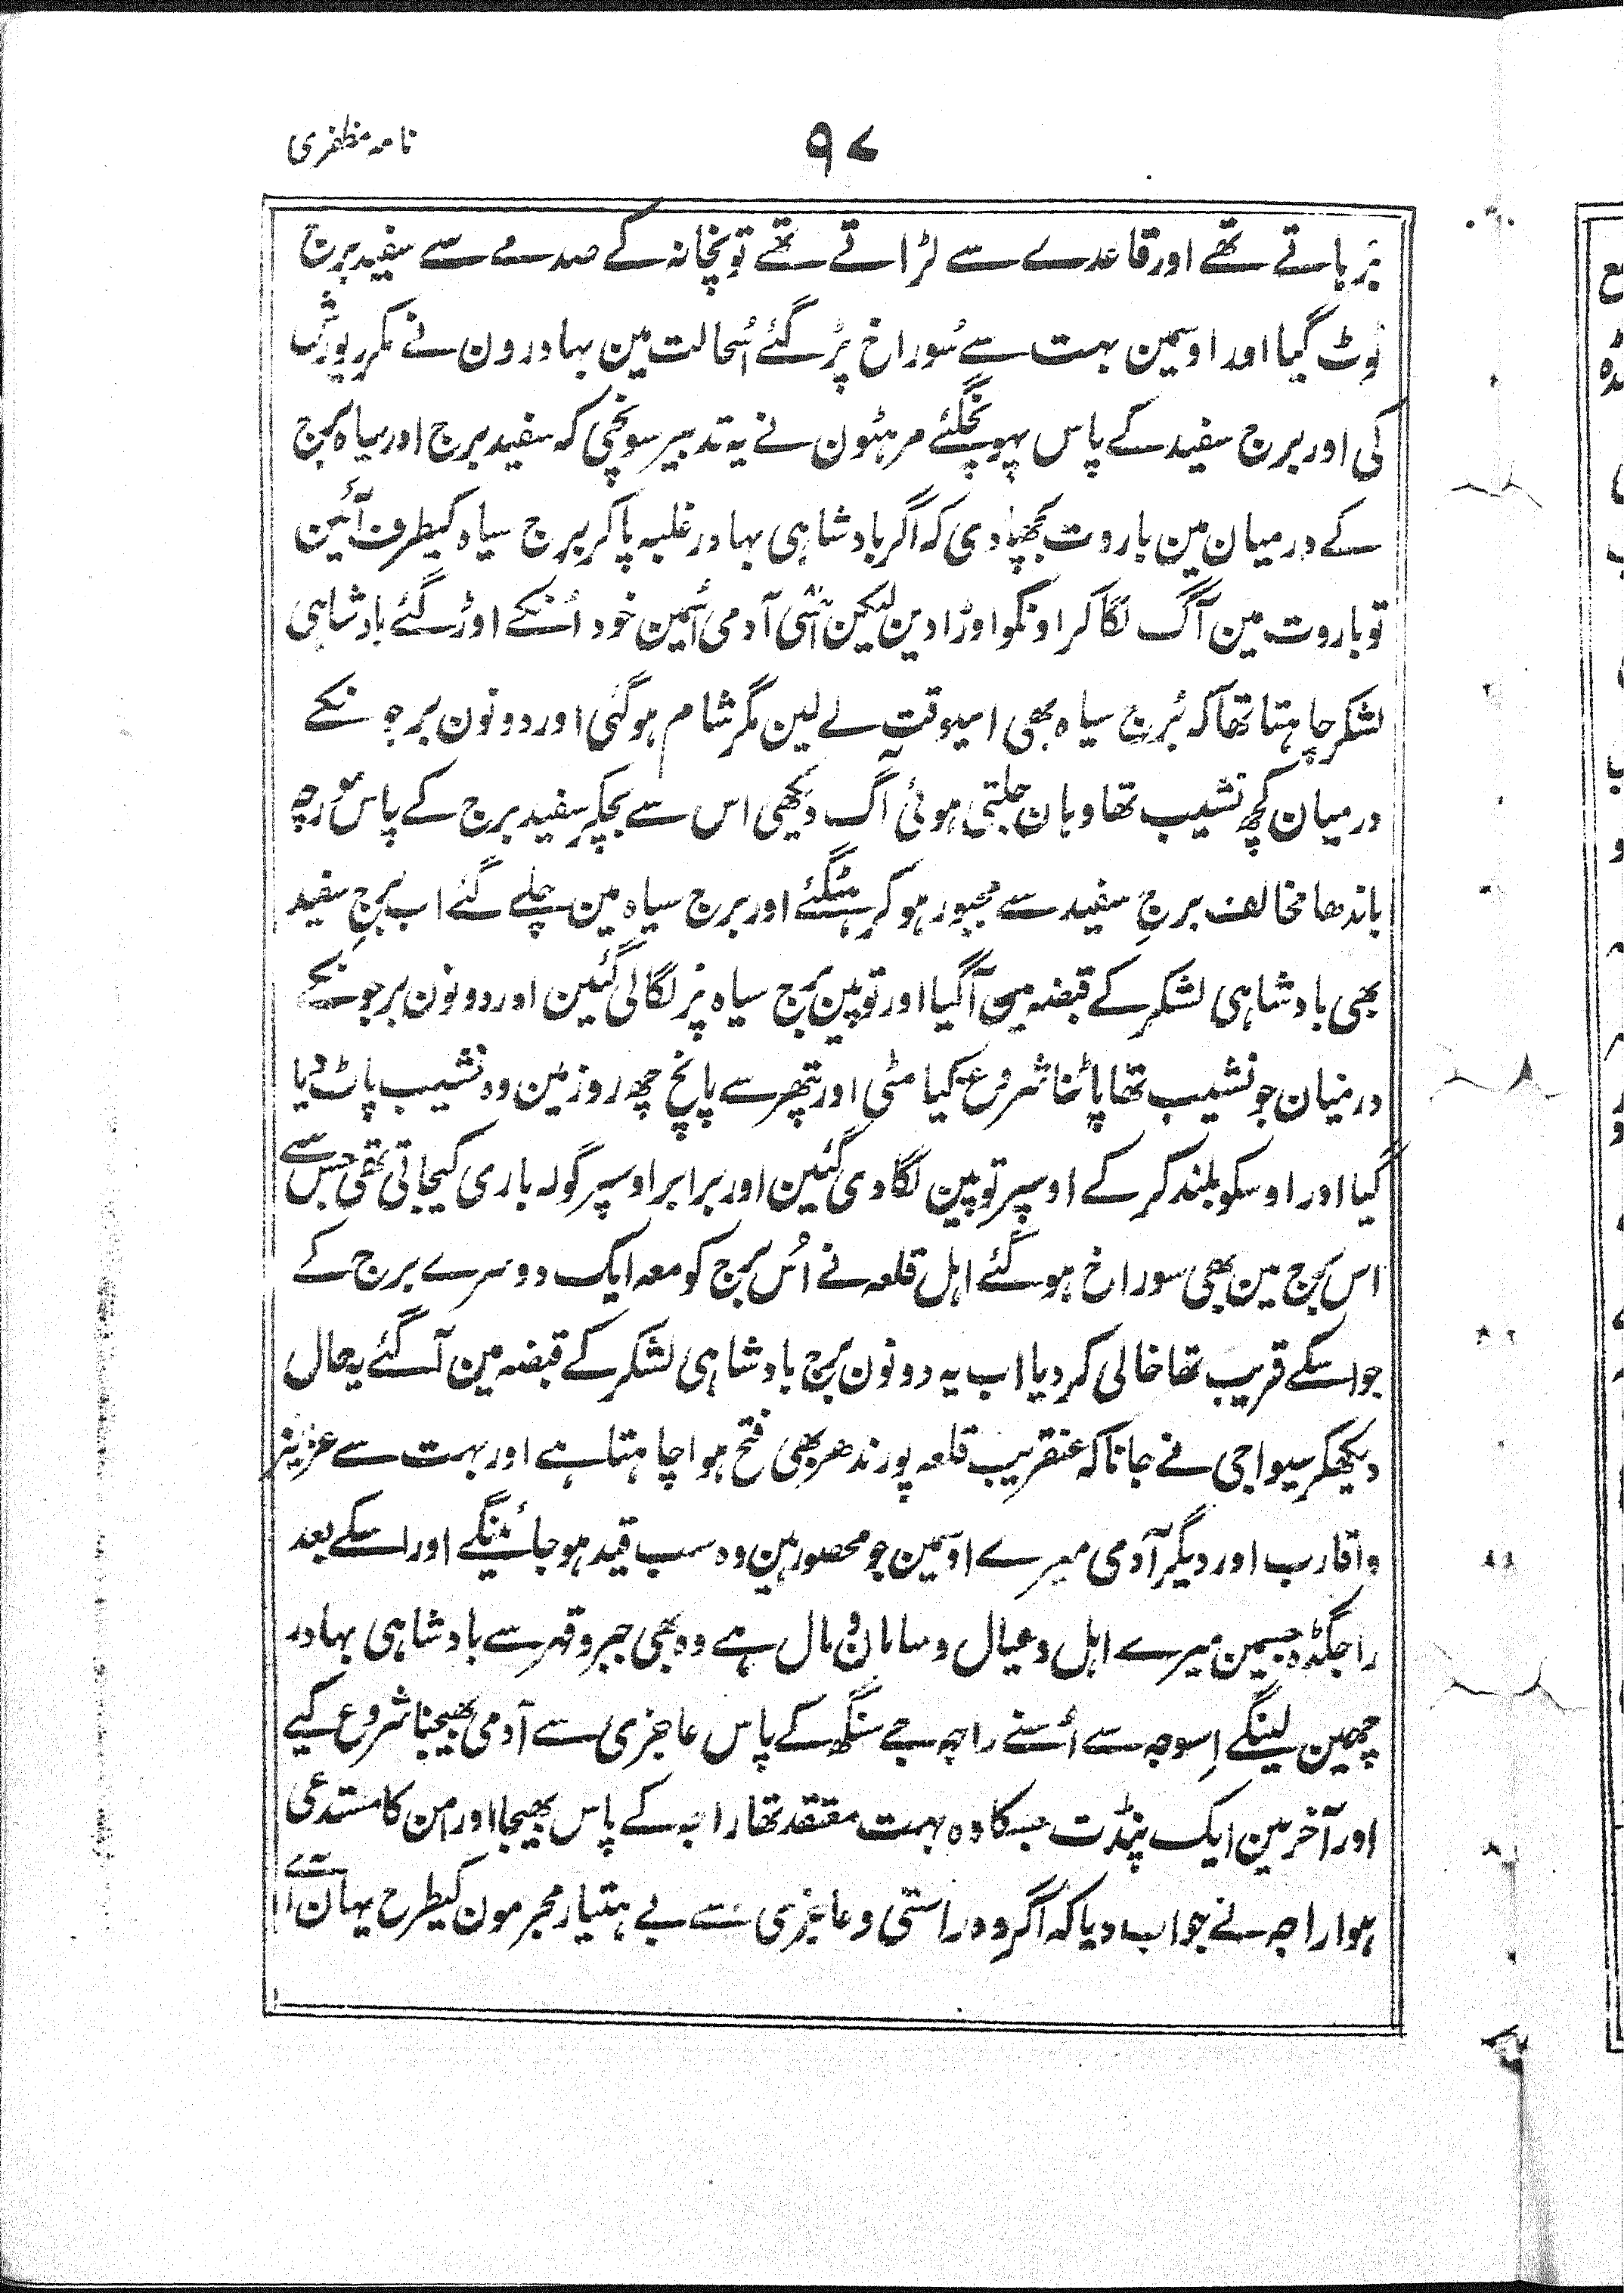 نامہ مظفری
۹۷
بڑہاتے تھے اور قاعدے سے لڑاتے تھے توپخانہ کے صدمے سے سفید برج
ٹوٹ گیا اور اوسمین بہت سے سُوراخ پڑ گئے اُسحالت مین بہادرون نے مکرر یورش
کی اور برج سفید کے پاس پہونچگئے مرہٹون نے یہ تدبیر سونچی کہ سفید برج اور سیاہ برج
کے درمیان مین باروت بچھادی کہ اگر بادشاہی بہادر غلبہ پاکر برج سیاہ کیطرف آئین
تو باروت مین آگ لگا کر اونکو اوڑادین لیکن اسّی آدمی اُسمین خود اُنکے اوڑ گئے بادشاہی
لشکر چاہتا تھا کہ بُرج سیاہ بھی اسیوقت لے لین مگر شام ہو گئی اور دونون برجونکے
درمیان کچھ نشیب تھا وہان جلتی ہوئی آگ دیکھی اس سے بچکر سفید برج کے پاس مورچہ
باندھا مخالف برجِ سفید سے مجبور ہو کر ہٹگئے اور برج سیاہ مین چلے گئے اب برجِ سفید
بھی بادشاہی لشکر کے قبضہ مین آگیا اور توپین برج سیاہ پر لگالی گئین اور دونون برجونکے
درمیان جو نشیب تھا پاٹنا شروع کیا مٹی اور پتھر سے پانچ چھ روز مین وہ نشیب پاٹ دیا
گیا اور اوسکو بلند کر کے اوسپر توپین لگا دی گئین اور برابر اوسپر گولہ باری کیجاتی تھی جس سے
اس برج مین بھی سوراخ ہو گئے اہل قلعہ نے اُس برج کو معہ ایک دوسرے برج کے
جو اسکے قریب تھا خالی کر دیا اب یہ دونون برج بادشاہی لشکر کے قبضہ مین آگئے یہ حال
دیکھکر سیواجی نے جانا کہ عنقریب قلعہ پورندھر بھی فتح ہوا چاہتا ہے اور بہت سے عزیز
واقارب اور دیگر آدمی میرے اوسمین جو محصور ہین وہ سب قید ہو جائینگے اور اسکے بعد
راجگڈہ جسمین میرے اہل و عیال و سامان و مال ہے وہ بھی جبر و قہر سے بادشاہی بہادر
چھین لینگے اِسوجہ سے اُسنے راجہ جے سنگھ کے پاس عاجزی سے آدمی بھیجنا شروع کیے
اور آخر مین ایک پنڈت جسکا وہ بہت معتقد تھا راجہ کے پاس بھیجا اور امن کا مستدعی
ہوا راجہ نے جواب دیا کہ اگر وہ راستی و عاجزی سے بے ہتیار مجرمون کیطرح یہان